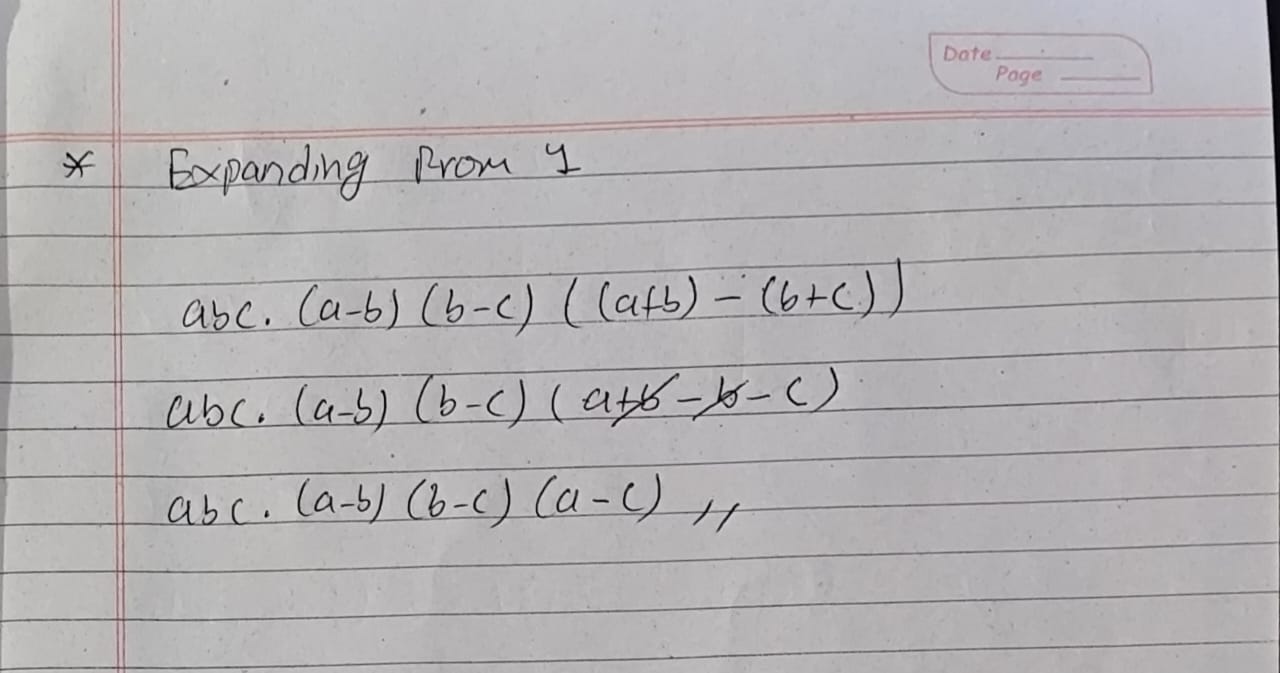 Date
Page
* Expanding from 1
abc. (a-b) (b-c) ((a+b) - (b+c))
abc. (a-b) (b-c) (a+b - b - c)
abc. (a-b) (b-c) (a-c) ,,